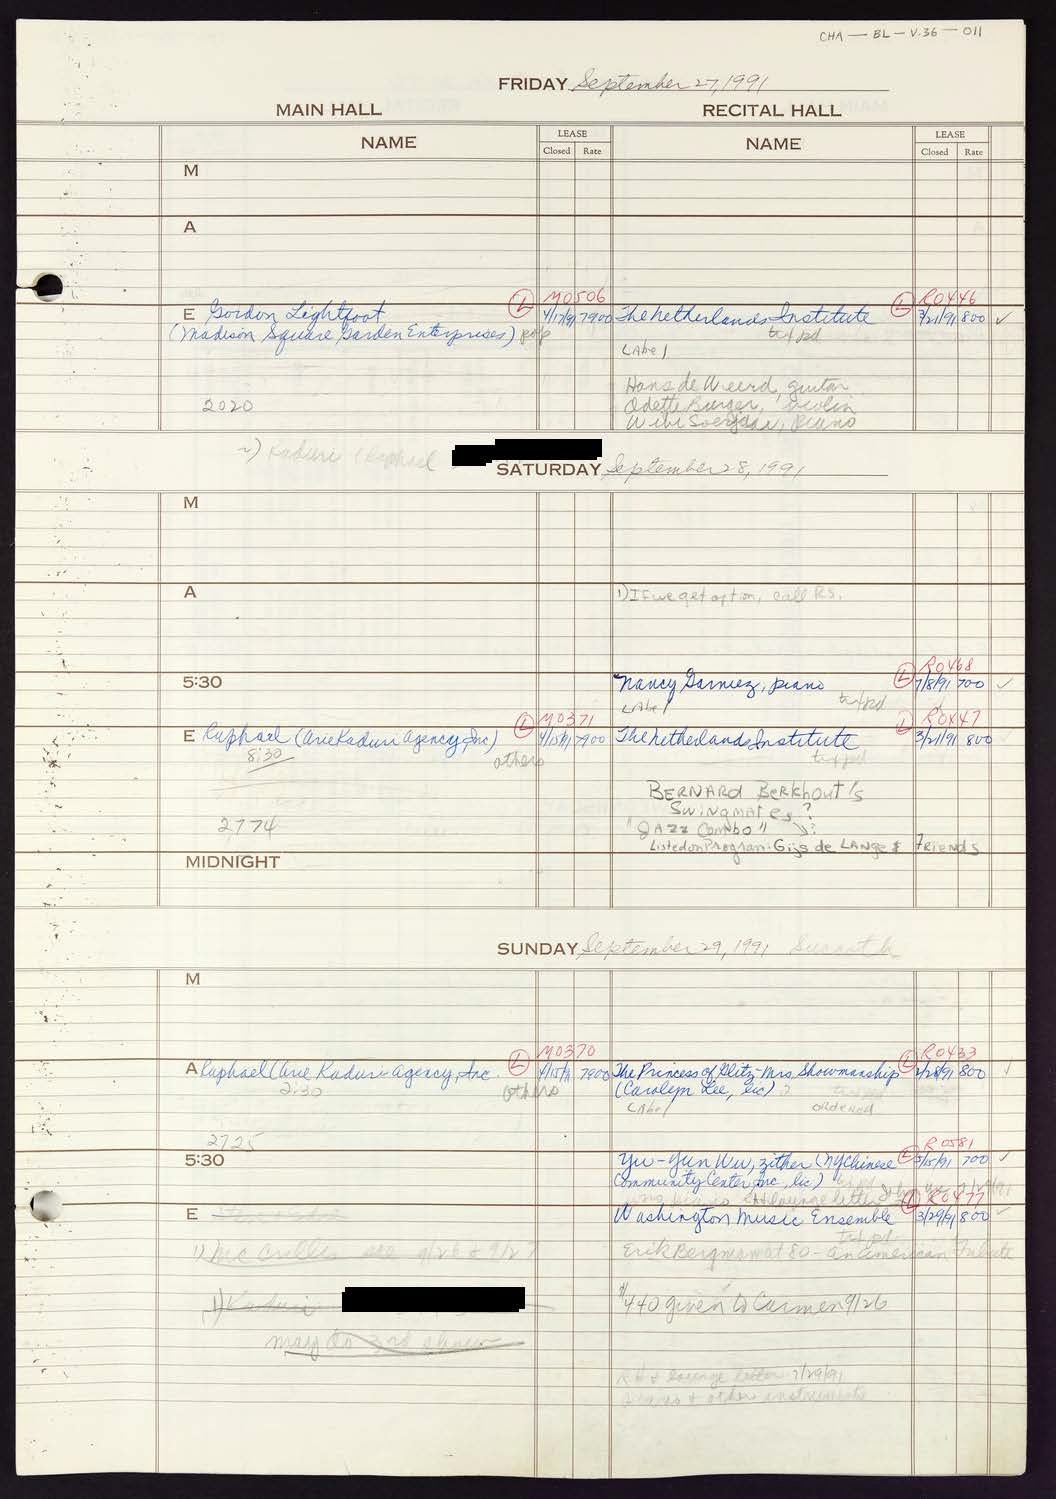 CHA — BL — V.36 — 011
FRIDAY September 27, 1991
MAIN HALL RECITAL HALL
NAME LEASE NAME LEASE
Closed Rate Closed Rate
M
A
L M0506 L R0446
E Gordon Lightfoot 4/17/91 7900 The Netherlands Institute 3/21/91 800 ✓
(Madison Square Garden Enterprises) pop
LAbel
Hans de Weerd, guitar
2020 Odette Burger, violin
Wibi Soerjadi, piano
Kaduri / Raphael
SATURDAY September 28, 1991
M
A 1) If we get option, call RS.
L R0468
5:30 Nancy Garniez, piano 7/8/91 700 ✓
LAbel tx/pd
L M0371 L R0447
E Raphael (Arie Kaduri Agency, Inc) 4/15/91 7900 The Netherlands Institute 3/21/91 800
8:30 others tx/pd
BERNARD Berkhout's
Swingmates ?
2774 "JAZZ Combo" ?
Listed on Program: Gijs de LANge & FRIENDS
MIDNIGHT
SUNDAY September 29, 1991
M
L M0370 L R0433
A Raphael (Arie Kaduri Agency, Inc. 4/15/91 7900 The Princess of Glitz - Mrs Showmanship 2/28/91 800
2:30 others (Carolyn Lee, lic) ?
LAbel ordered
2725 R0581
5:30 Yu-Yun Wu, zither (NY Chinese L 5/15/91 700 ✓
Community Center, Inc, lic)
L R0477
E Washington Music Ensemble 3/29/91 800
1) Mc Cullen see 9/26 & 9/27 Erik Bergman at 80 - An American Tribute
1) Kaduri $440 given to Carmen 9/26
may do 3rd show
RH & lounge letter 7/29/91
pianos & other instruments